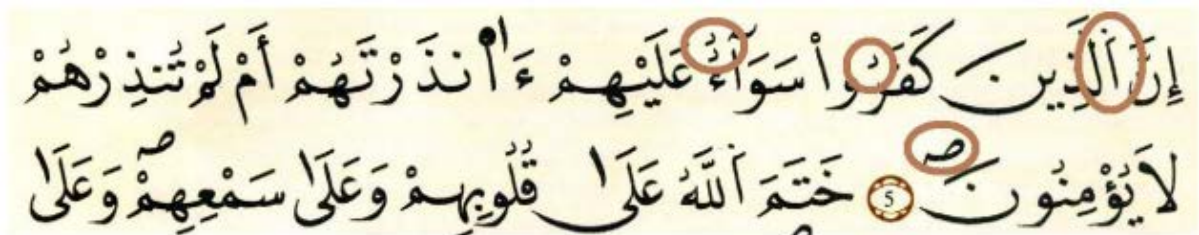 إِنَّ اَ۬لذِينَ كَفَرُواْ سَوَآءٌ عَلَيْهِمْ ءَآنذَرْتَهُمْ أَمْ لَمْ تُنذِرْهُمْ
لَا يُؤْمِنُونَۖ 5 خَتَمَ اَ۬للَّهُ عَلَىٰ قُلُوبِهِمْ وَعَلَىٰ سَمْعِهِمْۖ وَعَلَىٰ